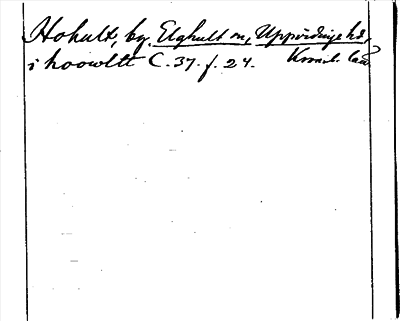 Hohult, by, Elghult sn, Uppvidinge hd,
i hoowltt C. 37. f. 24. Kronob. län